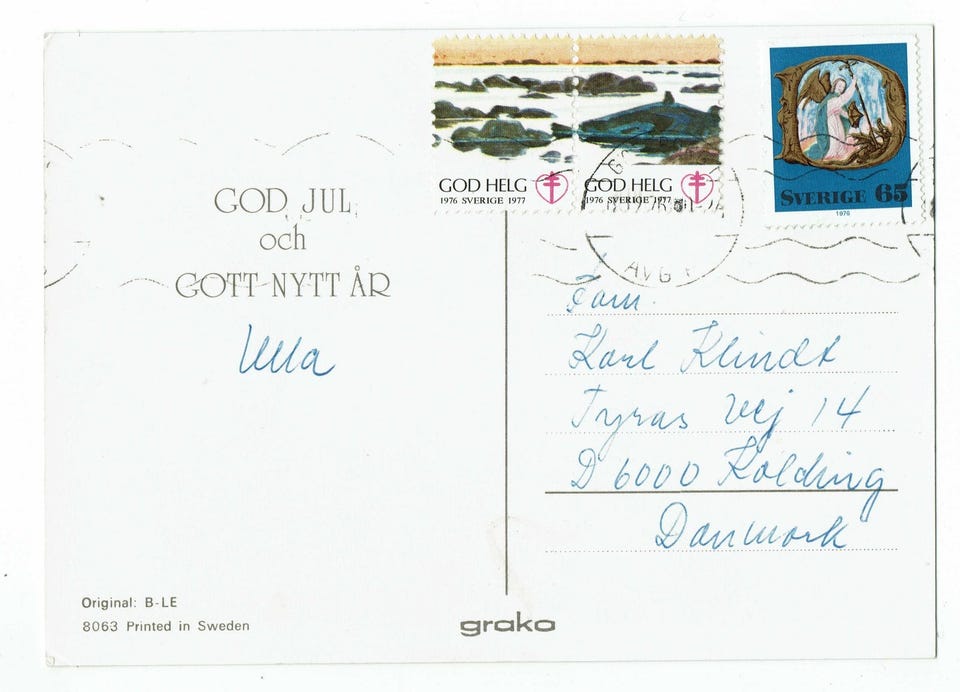 GOD HELG
1976 SVERIGE 1977
GOD HELG
1976 SVERIGE 1977
SVERIGE 65
1976
AVG
GOD JUL
och
GOTT NYTT ÅR
Ulla
Fam.
Karl Klindt
Tyras Vej 14
D 6000 Kolding
Danmark
Original: B-LE
8063 Printed in Sweden
grako